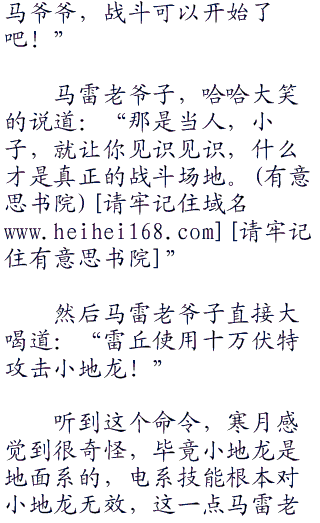 马爷爷，战斗可以开始了
吧！”
马雷老爷子，哈哈大笑
的说道：“那是当人，小
子，就让你见识见识，什么
才是真正的战斗场地。(有意
思书院)[请牢记住域名
www.heihei168.com][请牢记
住有意思书院]”
然后马雷老爷子直接大
喝道：“雷丘使用十万伏特
攻击小地龙！”
听到这个命令，寒月感
觉到很奇怪，毕竟小地龙是
地面系的，电系技能根本对
小地龙无效，这一点马雷老